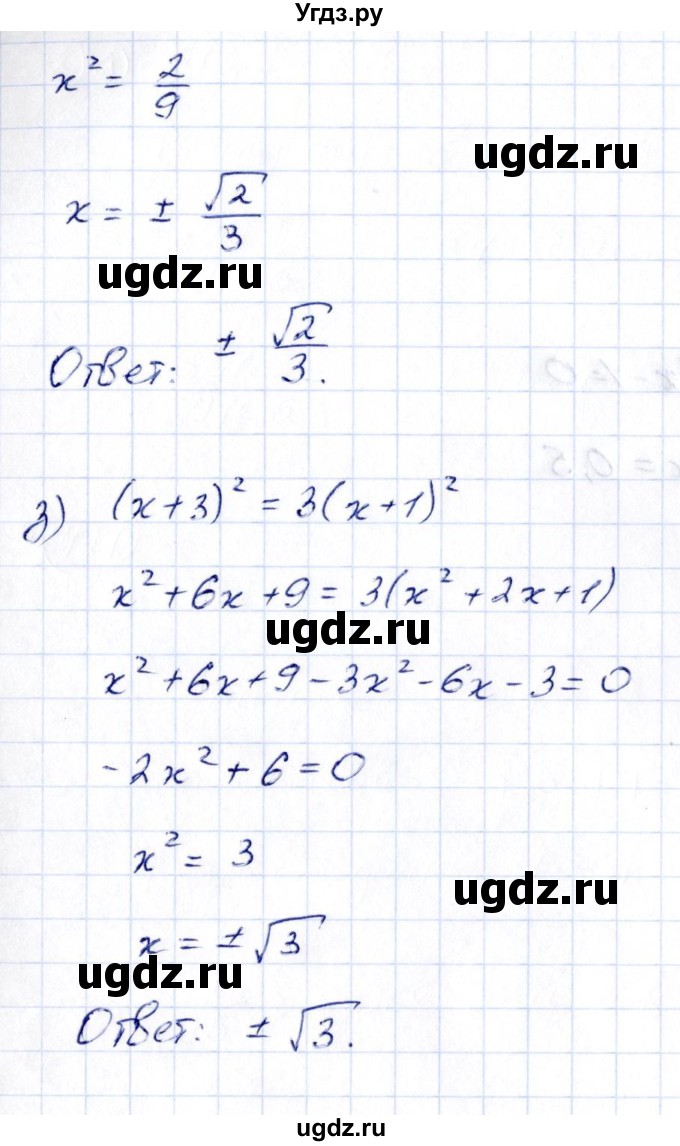 Угдз.ру
x² = 2/9
ugdz.ru
x = ± √2/3
ugdz.ru
Ответ: ± √2/3.
з) (x+3)² = 3(x+1)²
x² + 6x + 9 = 3(x² + 2x + 1)
ugdz.ru
x² + 6x + 9 - 3x² - 6x - 3 = 0
-2x² + 6 = 0
x² = 3
ugdz.ru
x = ± √3
ugdz.ru
Ответ: ± √3.
ugdz.ru